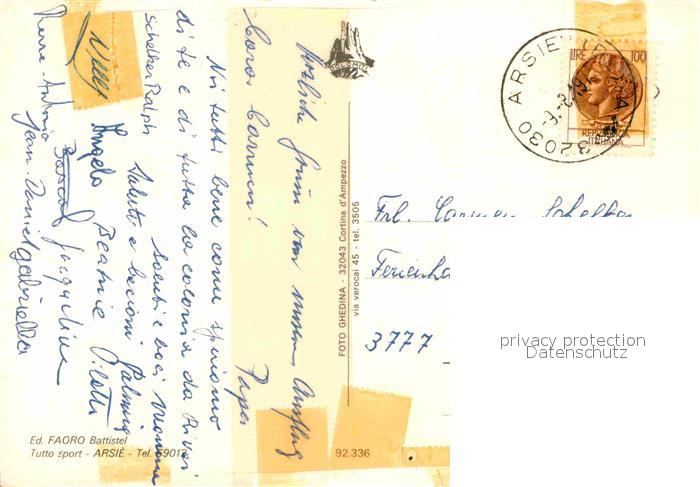 herzliche Grüsse von unserem Ausflug
Papa
Caros Carmen!
Noi tutti bene come speriamo
di te e di tutta la colonia da Rivai
Schelker Ralph
saluti e baci mamma
Saluti e bacioni Palmira
Nelly
Angelo Beatrice Pilotti
Jacqueline
Pierre-Antonio
Jean-Daniel gabriella
DOLOMITI
FOTO GHEDINA - 32043 Cortina d'Ampezzo
via verocai 45 - tel. 3505
LIRE 100
REPUBBLICA
ITALIANA
32030 ARSIE'
Frl. Carmen Schelker
3777
privacy protection
Datenschutz
Ed. FAORO Battistel
Tutto sport - ARSIÈ - Tel. 59012
92.336